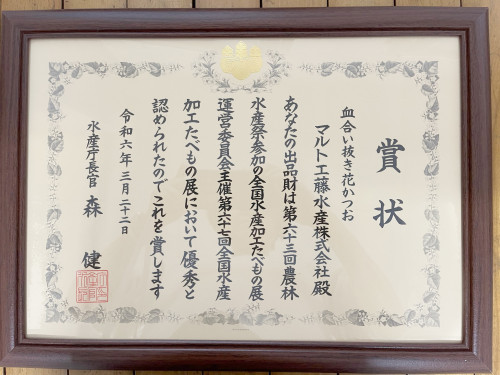 賞状
血合い抜き花かつお
マルト工藤水産株式会社殿
あなたの出品財は第六十三回農林
水産祭参加の全国水産加工たべもの展
運営委員会主催第六十七回全国水産
加工たべもの展において優秀と
認められたのでこれを賞します
令和六年三月二十二日
水産庁長官 森 健